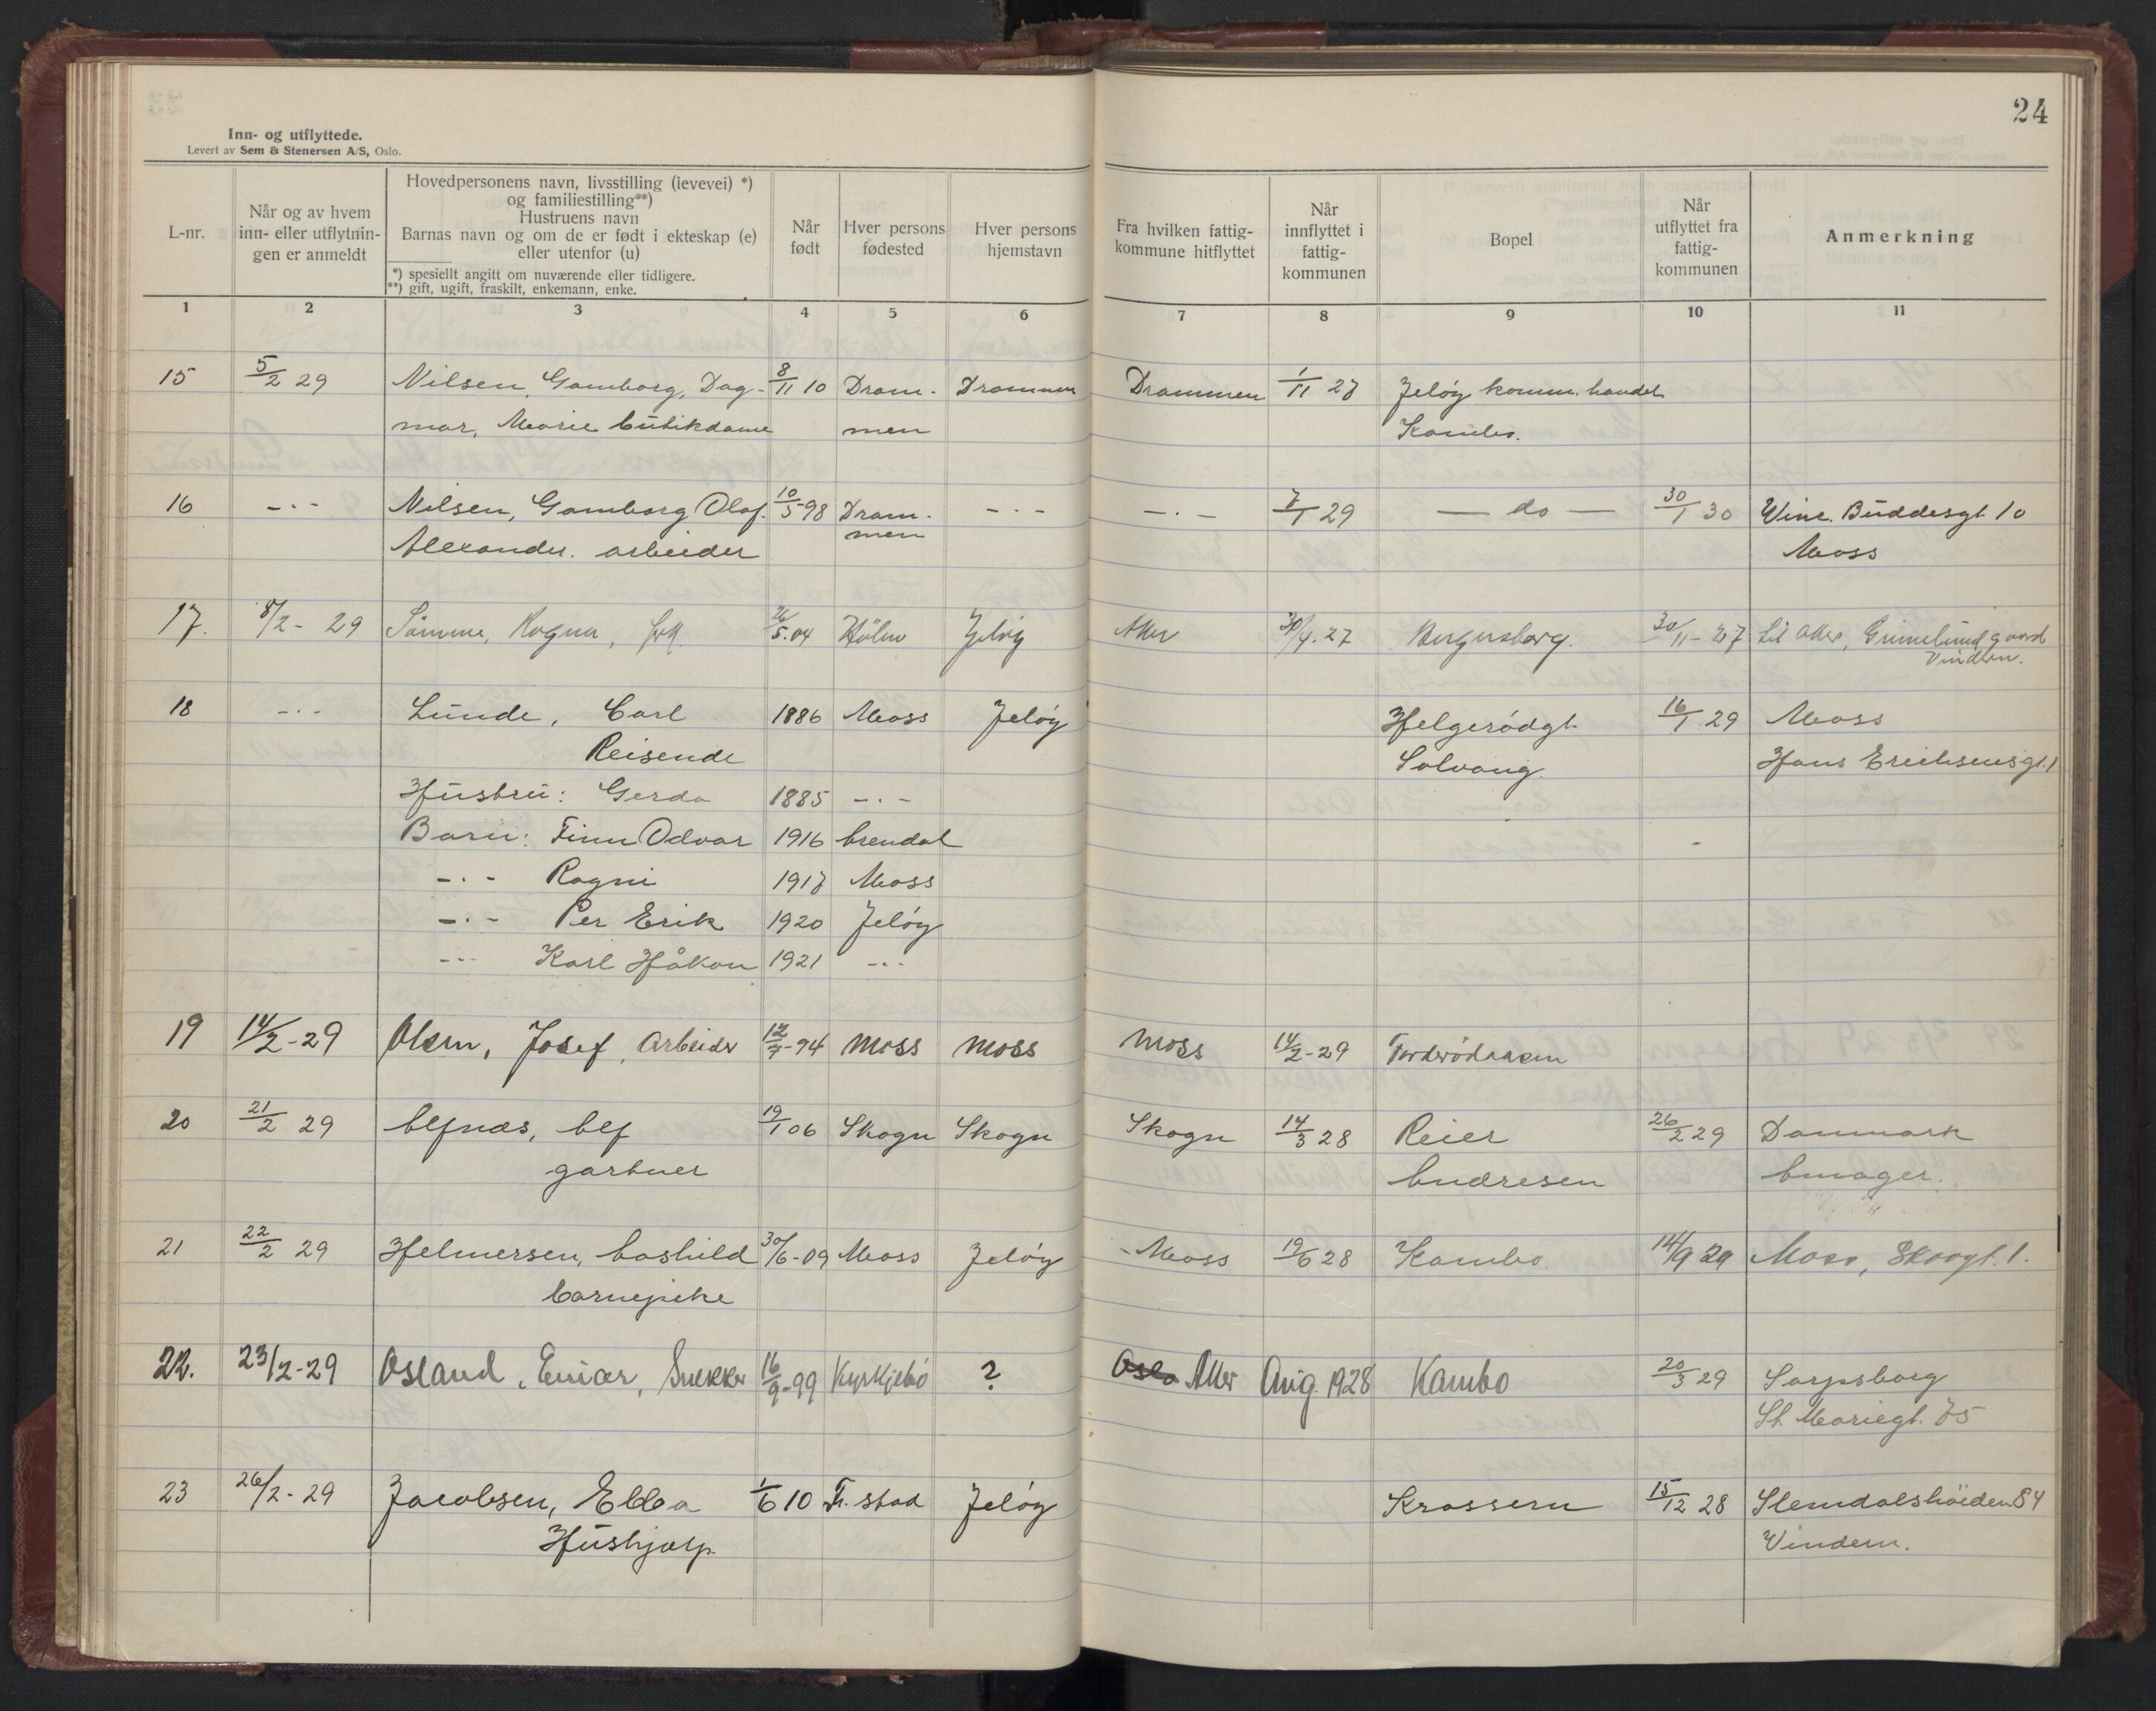 24
Inn- og utflyttede.
Levert av Sem & Stenersen A/S, Oslo.
L-nr.
Når og av hvem inn- eller utflytnin-gen er anmeldt
Hovedpersonens navn, livsstilling (levevei) *)
og familiestilling**)
Hustruens navn
Barnas navn og om de er født i ekteskap (e)
eller utenfor (u)
*) spesielt angitt om nuværende eller tidligere.
**) gift, ugift, fraskilt, enkemann, enke.
Når født
Hver persons fødested
Hver persons hjemstavn
Fra hvilken fattig-kommune hitflyttet
Når innflyttet i fattig-kommunen
Bopel
Når utflyttet fra fattig-kommunen
Anmerkning
1 2 3 4 5 6 7 8 9 10 11
15 5/2 29 Nilsen, Gamborg, Dag- 8/11 10 Dram- Drammen Drammen 1/11 27 Jeløy komm. handel
mar, Marie butikdame men Kambo.
16 -·- Nilsen, Gamborg Olaf. 10/5 98 Dram- -·- -·- 7/1 29 — do — 30/1 30 Winc. Buddesgt. 10
Alexander. arbeider men Moss
17. 8/2 - 29 Ragna, 5.04 Hölen Jeløy Aker 30/4. 27 Bergersborg. 30/11 - 27 til Aker, Grimelund gaard
Vindern.
18 -·- Lunde, Carl 1886 Moss Jeløy Helgerødgt. 16/1 29 Moss
Reisende Solvang. Hans Erichsensgt. 1
Hustru: Gerda 1885 -·-
Barn: Finn Odvar 1916 Arendal
-·- Ragni 1917 Moss
-·- Per Erik 1920 Jeløy
-·- Karl Håkon 1921 -·-
19 14/2 - 29 Olsen, Josef, Arbeider 12/7 - 94 Moss Moss Moss 14/2 - 29 Torderødaasen
20 21/2 29 Alfnæs, Alf 19/1 06 Skogn Skogn Skogn 14/3 28 Reier 26/2 29 Danmark
gartner Andresen Amager.
21 22/2 29 Helmersen, Aashild 30/6 - 09 Moss Jeløy - Moss 19/6 28 Kambo. 14/9 29 Moss, Skoggt. 1.
barnepike
22. 23/2 - 29 Osland, Einar, Snekker 16/9 - 99 Kyrkjebø ? Oslo Aker Aug. 1928 Kambo 20/3 29 Sarpsborg
St. Mariegt. 75
23 26/2 - 29 Jacobsen, Ebba 1/6 10 Fr. stad Jeløy Krossern 15/12 28 Slemdalshöiden 84
Hushjælp. Vindern.